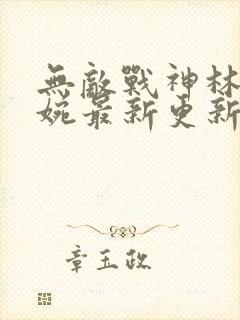 無敵戰神林
婉最新更新
章玉政